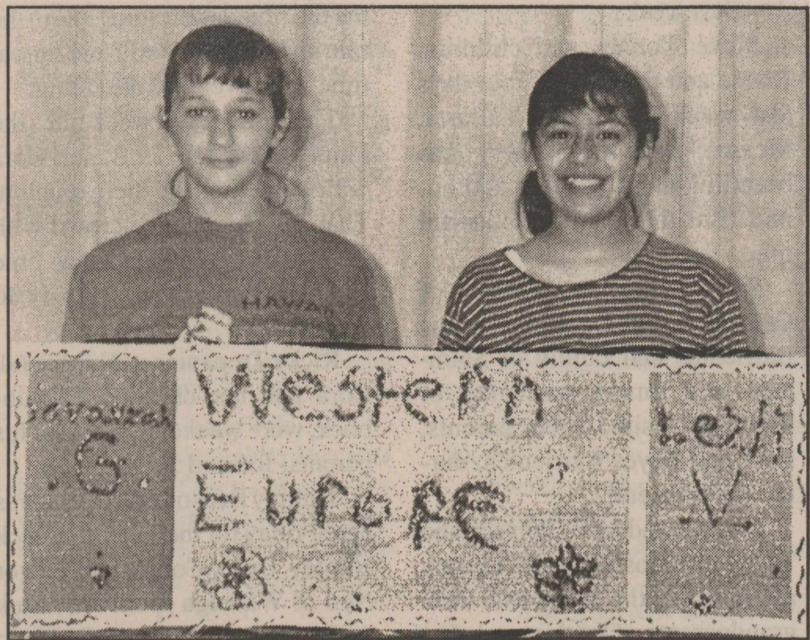 HAWAII
Savannah
G.
Western
Europe
Lezli
V